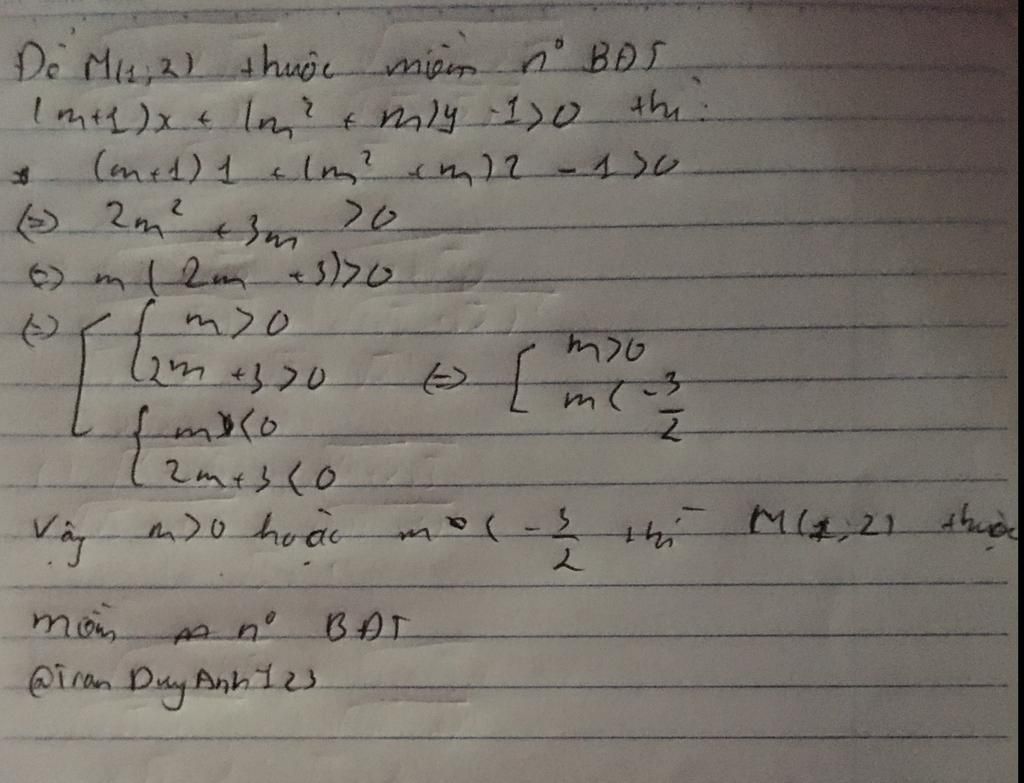 Để M(1,2) thuộc miền n° BĐT
(m+1)x + (m² + m)y - 1 > 0 thì:
(m+1)1 + (m² + m)2 - 1 > 0
(=) 2m² + 3m > 0
(=) m(2m + 3) > 0
(=) [ { m > 0
2m + 3 > 0 (=) [ m > 0
m < -3/2
{ m < 0
2m + 3 < 0
Vậy m > 0 hoặc m < -3/2 thì M(1,2) thuộc
miền n° BĐT
@TranDuyAnh123